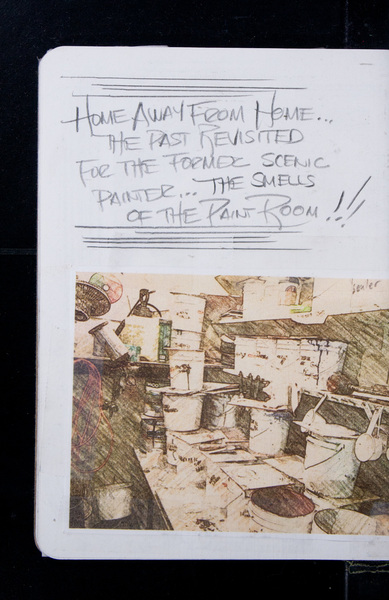 HOME AWAY FROM HOME...
THE PAST REVISITED
FOR THE FORMER SCENIC
PAINTER... THE SMELLS
OF THE PAINT ROOM!!!
Sealer